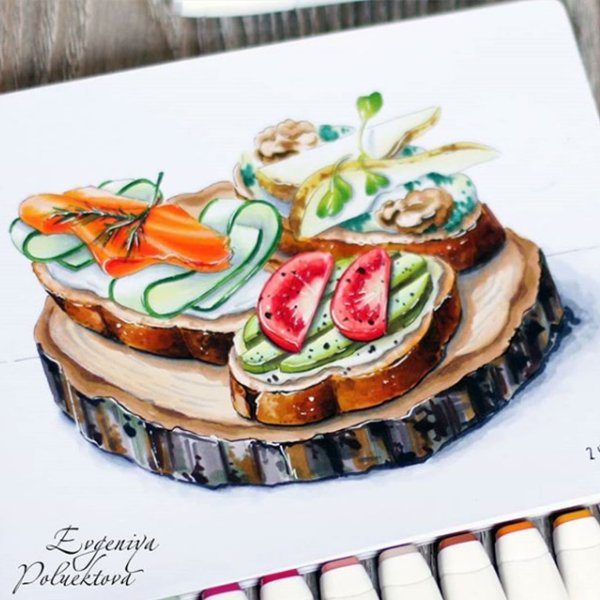 Evgeniya
Poluektova